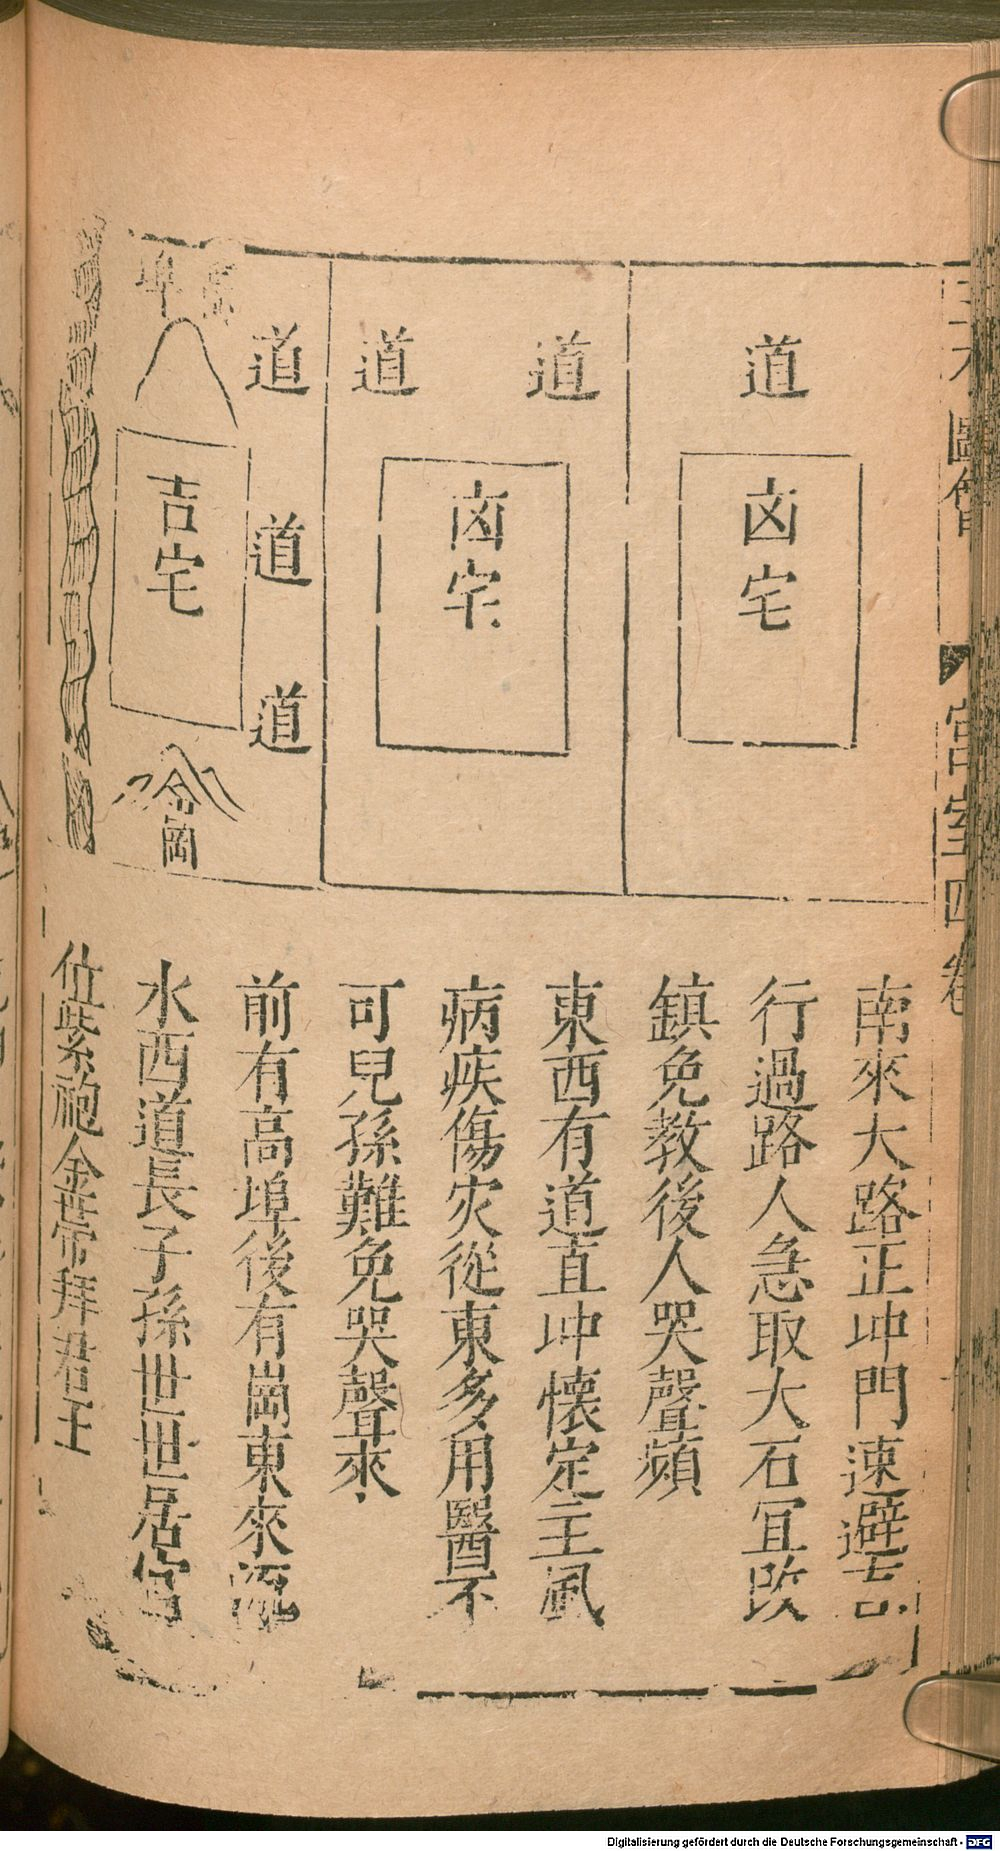 圖會
宮室四卷
道
凶宅
道
道
凶宅
道
道
道
埠
吉宅
岡
南來大路正冲門速避直
行過路人急取大石宜改
鎮免教後人哭聲頻
東西有道直冲懷定主風
病疾傷灾從東多用醫不
可兒孫難免哭聲來
前有高埠後有崗東來流
水西道長子孫世世居官
位紫袍金帶拜君王
Digitalisierung gefördert durch die Deutsche Forschungsgemeinschaft - DFG